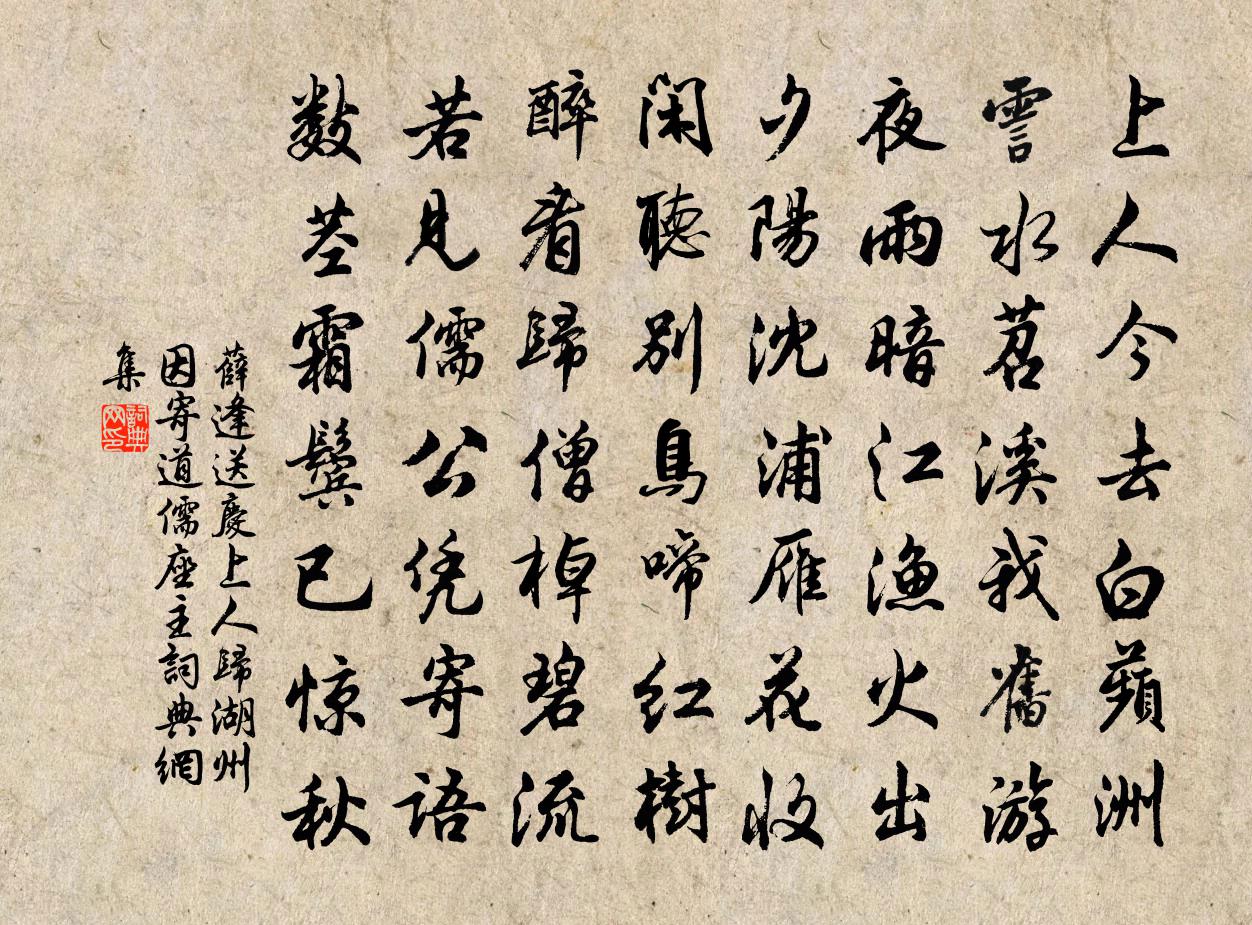 上人今去白蘋洲
霅水苕溪我舊游
夜雨暗江漁火出
夕陽沈浦雁花收
閑聽別鳥啼紅樹
醉看歸僧棹碧流
若見儒公凭寄語
數莖霜鬓已惊秋
薛逢送慶上人歸湖州
因寄道儒座主詞典網
集
詞典网印